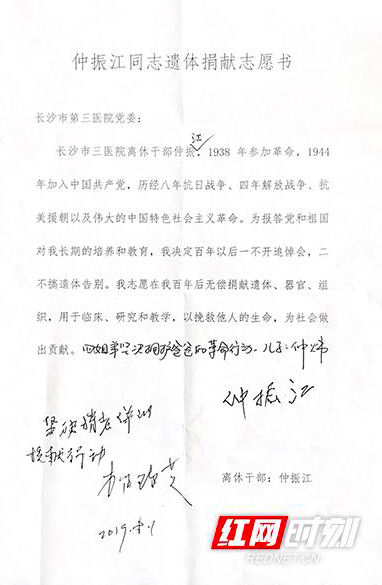 仲振江同志遗体捐献志愿书
长沙市第三医院党委:
江
长沙市三医院离休干部仲振,1938年参加革命,1944
年加入中国共产党,历经八年抗日战争、四年解放战争、抗
美援朝以及伟大的中国特色社会主义革命。为报答党和祖国
对我长期的培养和教育,我决定百年以后一不开追悼会,二
不搞遗体告别。我志愿在我百年后无偿捐献遗体、器官、组
织,用于临床、研究和教学,以挽救他人的生命,为社会做
出贡献。四姐弟坚决拥护爸爸的革命行动。儿子:仲炜
仲振江
坚决
捐献行动
离休干部:仲振江
2019
红网时刻
REDNET.CN